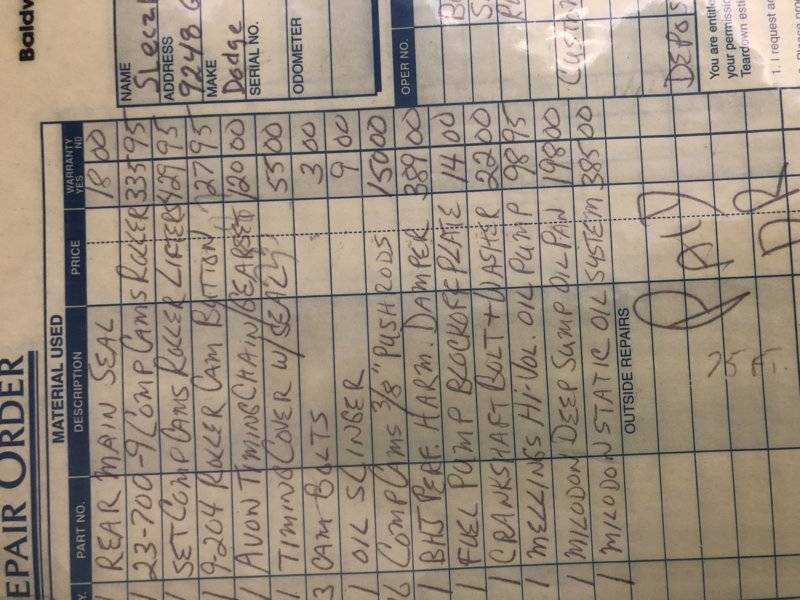 EPAIR ORDER
Baldw
MATERIAL USED
Y. PART NO. DESCRIPTION PRICE WARRANTY YES NO
1 REAR MAIN SEAL 18 00
1 23-700-9 COMP CAMS ROLLER 335 95
1 SET COMP CAMS ROLLER LIFTERS 429 95
1 9-204 ROLLER CAM BUTTON 27 95
1 AVON TIMING CHAIN/GEARSET 120 00
1 TIMING COVER W/SEAL 55 00
3 CAM BOLTS 3 00
1 OIL SLINGER 9 00
COMP CAMS 3/8" PUSH RODS 150 00
1 BHJ PERF. HARM. DAMPER 389 00
1 FUEL PUMP BLOCKOFF PLATE 14 00
1 CRANKSHAFT BOLT + WASHER 22 00
1 MELLINGS HI-VOL. OIL PUMP 98 95
1 MILODON DEEP SUMP OIL PAN 198 00
1 MILODON STATIC OIL SYSTEM 385 00
OUTSIDE REPAIRS
PAID
NAME
ADDRESS
9248
MAKE
Dodge
SERIAL NO.
ODOMETER
OPER NO.
Custom
DEPOS
You are entitle
your permissio
Teardown esti
1. I request ac